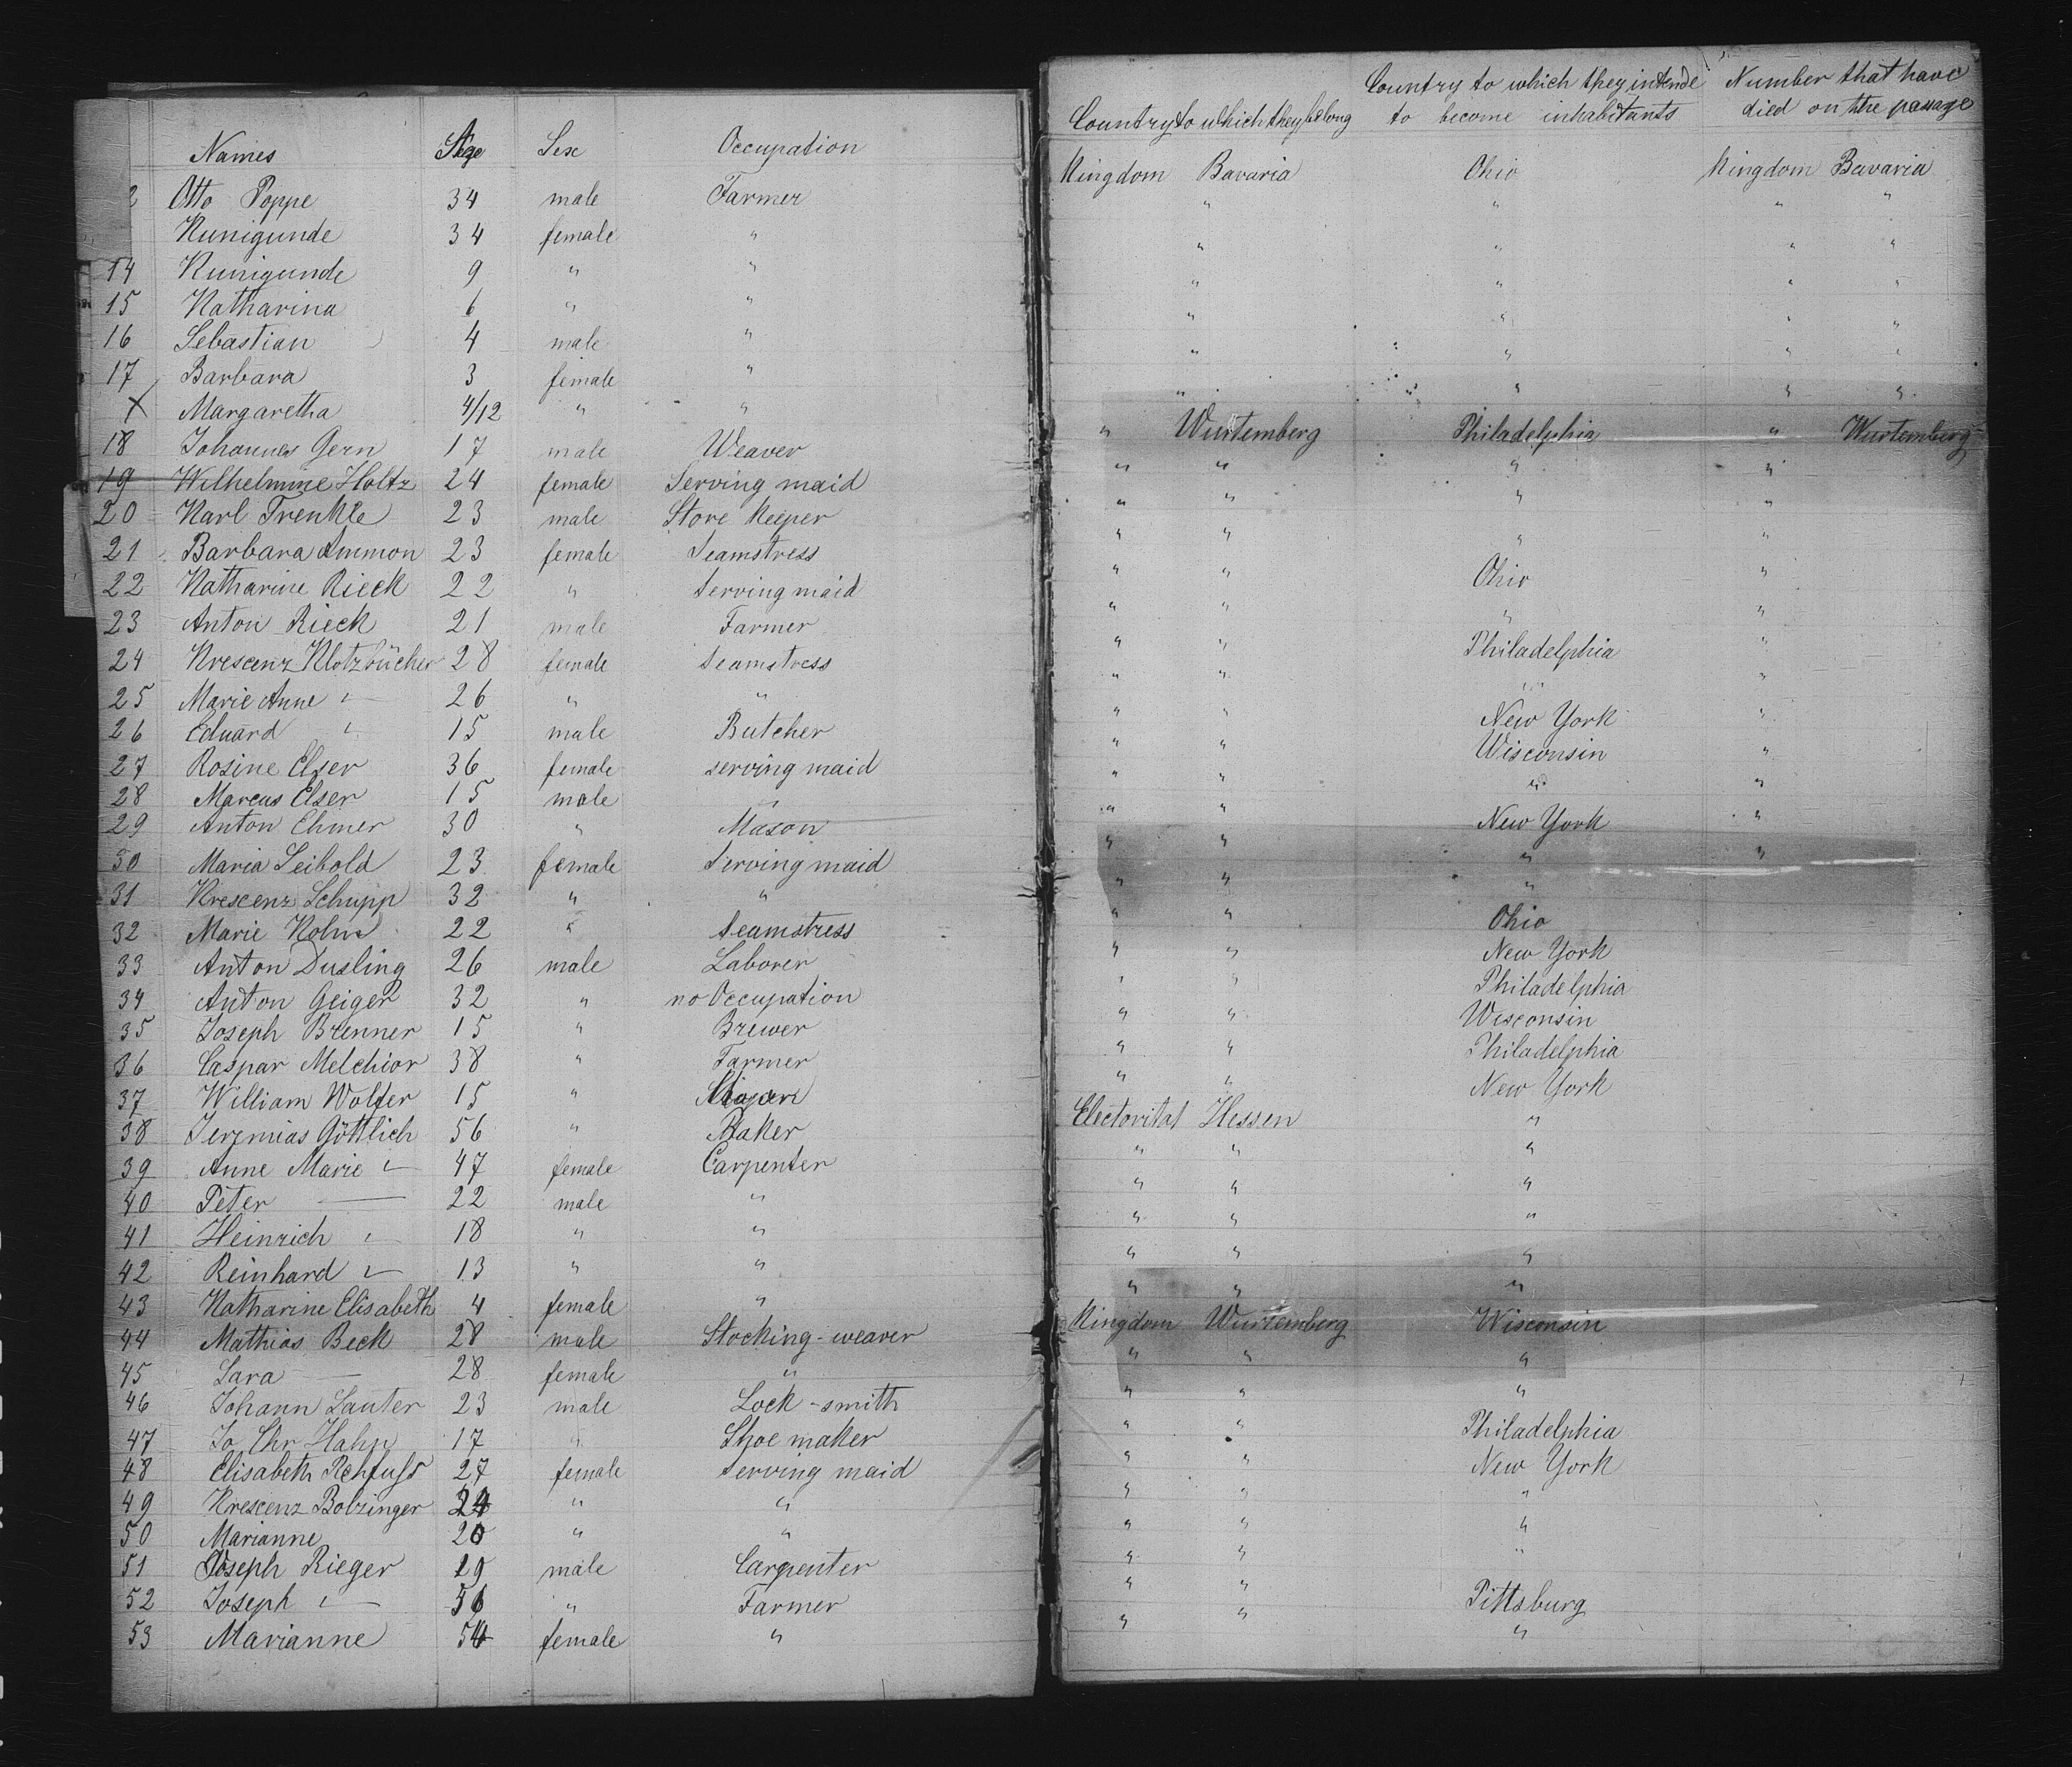 Names Age Sex Occupation
2 Otto Poppe 34 male Farmer
Kunigunde 34 female "
14 Kunigunde 9 " "
15 Katharina 6 " "
16 Sebastian 4 male "
17 Barbara 3 female "
X Margaretha 4/12 " "
18 Johannes Gern 17 male Weaver
19 Wilhelmine Holtz 24 female Serving maid
20 Karl Trenkle 23 male Store Keeper
21 Barbara Ammon 23 female Seamstress
22 Katharine Rieck 22 " Serving maid
23 Anton Rieck 21 male Farmer
24 Krescenz Klotzbücher 28 female Seamstress
25 Marie Anne " 26 " "
26 Eduard " 15 male Butcher
27 Rosine Elser 36 female serving maid
28 Marcus Elser 15 male "
29 Anton Ehmer 30 " Mason
30 Maria Leibold 23 female Serving maid
31 Krescenz Schupp 32 " "
32 Marie Kohn 22 " Seamstress
33 Anton Dusling 26 male Laborer
34 Anton Geiger 32 " no Occupation
35 Joseph Brenner 15 " Brewer
36 Caspar Melchior 38 " Farmer
37 William Wolfer 15 "
38 Jeremias Göttlich 56 " Baker
39 Anne Marie " 47 female Carpenter
40 Peter — 22 male "
41 Heinrich " 18 " "
42 Reinhard " 13 " "
43 Katharine Elisabeth 4 female "
44 Mathias Beck 28 male Stocking-weaver
45 Sara — 28 female "
46 Johann Lauter 23 male Lock-smith
47 Jo Chr Hahn 17 " Shoe maker
48 Elisabeth Rehfuss 27 female Serving maid
49 Krescenz Bobzinger 24 " "
50 Marianne 20 " "
51 Joseph Rieger 19 male Carpenter
52 Joseph " 56 " Farmer
53 Marianne 54 female "
Country to which they belong Country to which they intend to become inhabitants Number that have died on the passage
Kingdom Bavaria Ohio Kingdom Bavaria
" " " "
" " " "
" " " "
" " " "
" " " "
" " " "
" Wurtemberg Philadelphia " Wurtemberg
" " " "
" " " "
" " " "
" " Ohio "
" " " "
" " Philadelphia "
" " " "
" " New York "
" " Wisconsin "
" " " "
" " New York "
" " " "
" " "
" " Ohio
" " New York
" " Philadelphia
" " Wisconsin
" " Philadelphia
" " New York
Electorital Hessen "
" " "
" " "
" " "
" " "
" " "
Kingdom Wurtemberg Wisconsin
" " "
" " "
" " Philadelphia
" " New York
" " "
" " "
" " "
" " Pittsburg
" " "